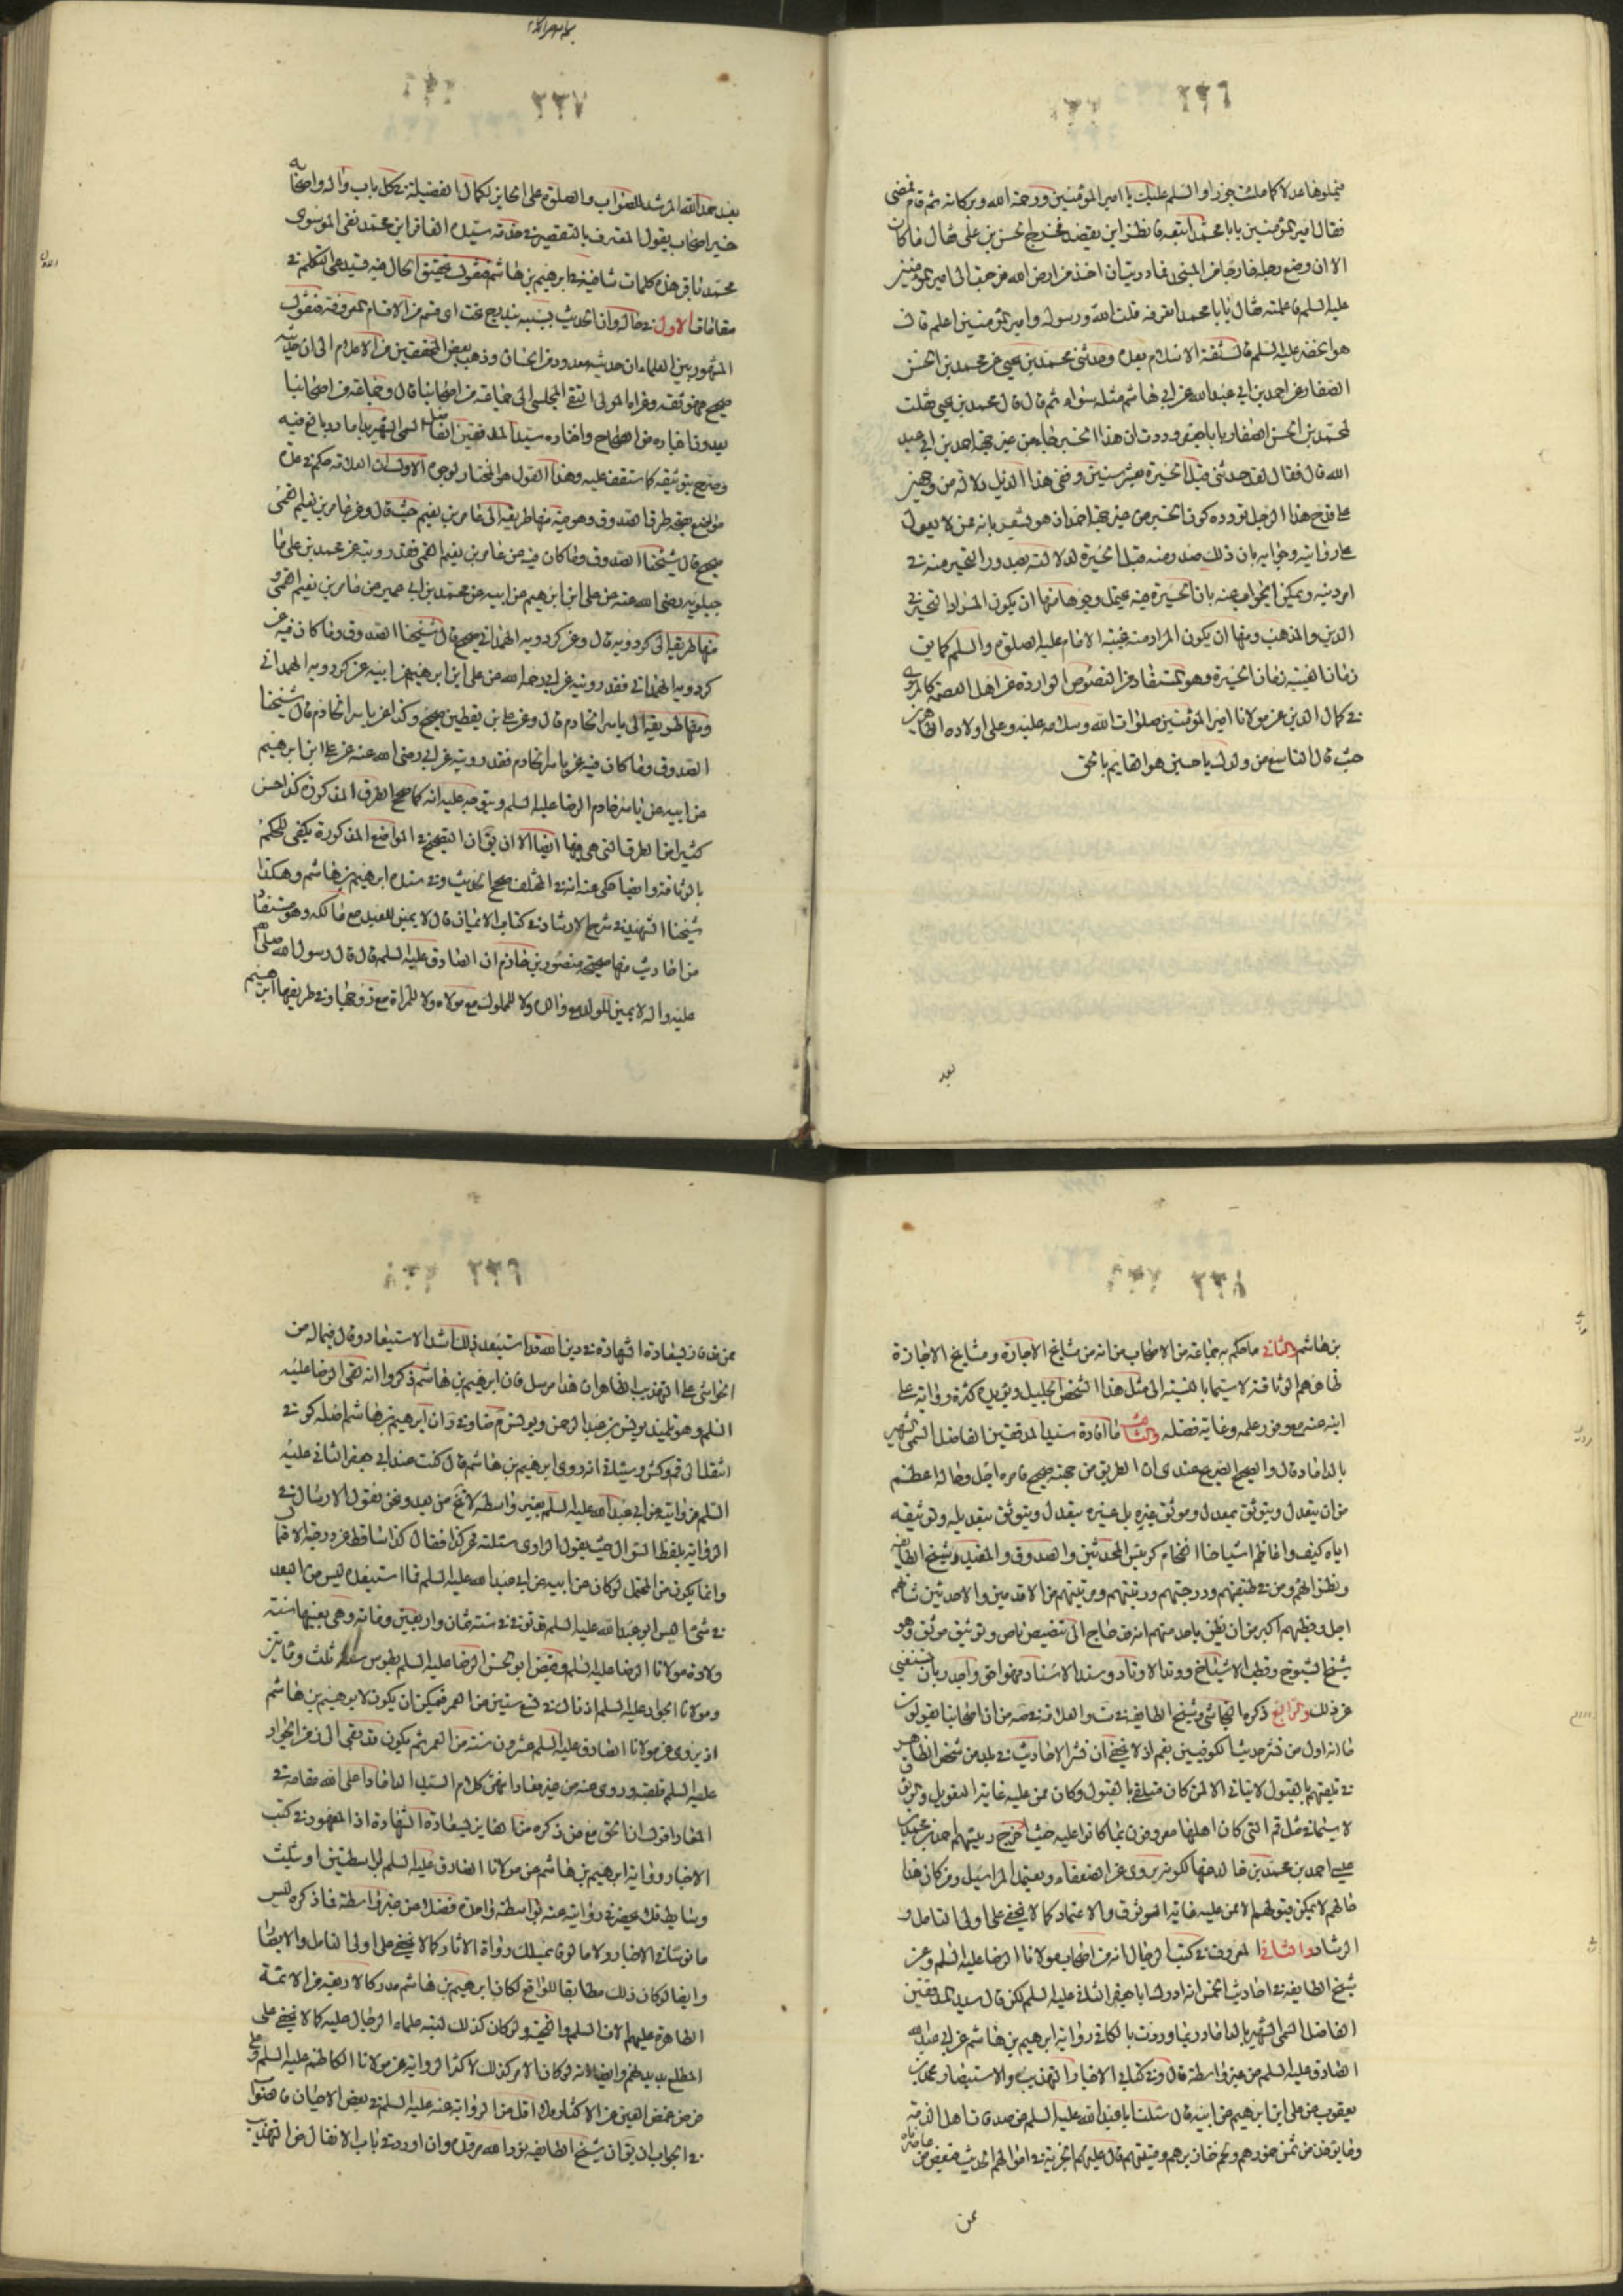 ٢٣٦
فيملوها عدلا كما ملئت جورا والسلم عليك يا امير المؤمنين ورحمة الله وبركاته ثم قام فمضى
فقال امير المؤمنين يا ابا محمد اتبعه فانظر اين يقصد فخرج الحسن بن على فقال ما كان
الا ان وضع رجله خارجا من المسجد فما دريت اين اخذ من ارض الله فرجعت الى امير المؤمنين
عليه السلم فاعلمته فقال يا ابا محمد اتعرفه قلت الله ورسوله وامير المؤمنين اعلم قال
هو الخضر عليه السلم قال ثقة الاسلام بعده وحدثنى محمد بن يحيى عن محمد بن الحسن
الصفار عن احمد بن ابي عبد الله عن ابي هاشم مثله سواء ثم قال قال محمد بن يحيى فقلت
لمحمد بن الحسن الصفار يا ابا جعفر وددت ان هذا الخبر جاء من غير جهة احمد بن ابي عبد
الله قال فقال لقد حدثنى قبل الحيرة بعشر سنين وفى هذا الذيل دلالة من وجهين
على قدح هذا الرجل لان وده كون الخبر من غير جهة احمد ان هو يشعر بانه ممن لا يعول
على روايته وجوابه بان ذلك صدر منه قبل الحيرة لدلالته بصدور التحير منه في
امر دينه ويمكن الجواب عنه بان الحيرة فيه يحتمل وجوها منها ان يكون المراد التحير في
الدين والمذهب ومنها ان يكون المراد منه غيبة الامام عليه الصلوة والسلم كما يق
زمان الغيبة زمان الحيرة وهو المستفاد من النصوص الواردة عن اهل العصمة كالمروى
في كمال الدين عن مولانا امير المؤمنين صلوات الله وسلامه عليه وعلى اولاده الطاهرين
حيث قال التاسع من ولدك يا حسين هو القايم بالحق
بعد
٢٣٧
بعد حمد الله المرشد للصواب والصلوة على الحايز لكمال الفضيلة في كل باب واله واصحابه
خير اصحاب يقول المعترف بالتقصير في خدمة سيده الغافر ابن محمد نقى الموسوى
محمد باقر هذه كلمات شافية في ابرهيم بن هاشم فنقول تحقيق الحال فيه يستدعى التكلم في
مقامات الاول في حاله وان الحديث بسببه يندرج تحت اى قسم من الاقسام المعروفة فنقول
المشهور بين العلماء ان حديثه معدود من الحسان وذهب بعض المحققين من الاعلام الى ان حديثه
صحيح فهو ثقة وعزاه المولى التقى المجلسى الى جماعة من اصحابنا قال وجماعة من اصحابنا
يعدون اخباره من الصحاح واختاره سيد المدققين الفاضل السمى الشهير بالداماد وبالغ فيه
وصرح بتوثيقه كما ستقف عليه وهذا القول هو المختار لوجوه الاول ان العلامة حكم في عدة
مواضع بصحة طرق الصدوق وهو فيه منها طريقه الى عامر بن نعيم حيث قال وعن عامر بن نعيم القمى
صحيح قال شيخنا الصدوق وما كان فيه عن عامر بن نعيم القمى فقد رويته عن محمد بن على ما
جيلويه رضى الله عنه عن على ابن ابرهيم عن ابيه عن محمد بن ابي عمير عن عامر بن نعيم القمى و
منها طريقه الى كردويه قال وعن كردويه الهمدانى صحيح قال شيخنا الصدوق وما كان فيه عن
كردويه الهمدانى فقد رويته عن ابي رحمه الله عن على ابن ابرهيم عن ابيه عن كردويه الهمدانى
ومنها طريقه الى ياسر الخادم قال وعن على بن يقطين صحيح وكذا عن ياسر الخادم قال شيخنا
الصدوق وما كان فيه عن ياسر الخادم فقد رويته عن ابي رضى الله عنه عن على ابن ابرهيم
عن ابيه عن ياسر خادم الرضا عليه السلم ويتوجه عليه انه كما صحح الطرق المذكورة كذا حسن
كثيرا من الطرق التى هى فيها ايضا الا ان يق ان التصحيح في المواضع المذكورة يكفى للحكم
بالوثاقة وايضا حكى عنه انه في المختلف صحح الحديث وفى سنده ابرهيم بن هاشم وهكذا
شيخنا الشهيد في شرح الارشاد في كتاب الايمان قال لا يمين للعبد مع مالكه وهو مستفاد
من احاديث منها صحيحة منصور بن حازم ان الصادق عليه السلم قال قال رسول الله صلى الله
عليه واله لا يمين للولد مع والده ولا للمملوك مع مولاه ولا للمراة مع زوجها وفى طريقها ابرهيم
٢٣٨
بن هاشم والثانى ما حكم به جماعة من الاصحاب من انه من مشايخ الاجازة ومشايخ الاجازة
ظاهرهم الوثاقة لا سيما بالنسبة الى مثل هذا الشخص الجليل ويؤيده كثرة رواية على
ابنه عنه مع وفور علمه وغاية فضله والثالث ما افادة سيد المدققين الفاضل السمى الشهير
بالداماد قال والصحيح الصريح عندى ان الطريق من جهته صحيح فامره اجل وحاله اعظم
من ان يتعدل ويتوثق بمعدل وموثق غيره بل غيره يتعدل ويتوثق بتعديله وتوثيقه
اياه كيف واعاظم اشياخنا الفخام كرئيس المحدثين والصدوق والمفيد وشيخ الطايفة
ونظرائهم ومن في طبقتهم ودرجتهم ورتبتهم ومرتبتهم من الاقدمين والاحدثين شانهم
اجل وخطبهم اكبر من ان يظن باحد منهم انه قد حاج الى تنصيص ناص وتوثيق موثق وهو
شيخ الشيوخ وقطب الاشياخ ووتد الاوتاد وسند الاسناد فهو احق واجدر بان يستغنى
عن ذلك والرابع ذكره النجاشى وشيخ الطايفة في ست والعلامة في صه من ان اصحابنا يقولون
ما انه اول من نشر حديث الكوفيين بقم اذ لا يخفى ان نشر الاحاديث في بلد من شخص الظاهر
في تلقيهم بالقبول لا يتاتى الا لمن كان متلقى بالقبول وكان ممن عليه غاية التعويل والوثوق
لا سيما في مثل قم التى كان اهلها معروفون بما كانوا عليه حيث اخرج رئيسهم احمد بن محمد بن
عيسى احمد بن محمد بن خالد منها لكونه يروى عن الضعفاء ويعتمد المراسيل ومن كان هذا
حالهم لا يمكن قبولهم الا ممن عليه غاية الوثوق والاعتماد كما لا يخفى على اولى التامل و
الرشاد والثانى المعروف في كتب الرجال انه من اصحاب مولانا الرضا عليه السلم وعن
شيخ الطايفة في احاديث الخمس انه ادرك ابا جعفر الثانى عليه السلم لكن قال سيد المدققين
الفاضل السمى الشهير بالداماد ربما وردت بالكافى رواية ابرهيم بن هاشم عن ابي عبد الله
الصادق عليه السلم من غير واسطة قال وفى كتابى الاخبار التهذيب والاستبصار محمد بن
يعقوب عن على ابن ابرهيم عن ابيه قال سئلت ابا عبد الله عليه السلم عن صدقات اهل الذمة
وما يؤخذ من ثمن خمورهم ولحم خنازيرهم وميتتهم قال عليهم الجزية في اموالهم الحديث
عن
٢٣٩
انتقل الى قم وكش وسيئاتى انه روى ابرهيم بن هاشم قال كنت عند ابي جعفر الثانى عليه
السلم من روايته عن ابي عبد الله عليه السلم بغير واسطة لا تخ من بعد ونحن نقول الارسال في
الرواية بلفظ السؤال حيث يقول الراوى سئلته عن كذا فقال كذا ساقط عن درجة الاعتبار
وانما يكون من المحتمل لو كان عن ابيه عن ابي عبد الله عليه السلم فما استبعده ليس من البعد
في شئ اليس ابو عبد الله عليه السلم قد توفى في سنة ثمان واربعين ومائة وهى بعينها سنة
ولادة مولانا الرضا عليه السلم وقبض ابو الحسن الرضا عليه السلم بطوس سنة ثلث ومائتين
ومولانا الجواد عليه السلم اذ ذاك في تسع سنين من العمر فيمكن ان يكون لابرهيم بن هاشم
اذ يروى عن مولانا الصادق عليه السلم عشرون سنة من العمر ثم يكون قد بقى الى زمن الجواد
الاخبار رواية ابرهيم بن هاشم عن مولانا الصادق عليه السلم بواسطتين او بثلث
وسايط فلم يحضرنى روايته عنه بواسطة واحدة فضلا عن غير واسطة فما ذكره ليس
مانوسا في الاخبار ولا مالوفا بمسلك رواة الاثار كما لا يخفى على اولى التامل والايقا
وايضا لو كان ذلك مطابقا للواقع لكان ابرهيم بن هاشم مدركا لاربعة من الائمة
الطاهرة عليهم الاف السلم والتحية ولو كان كذلك لنبه علماء الرجال عليه كما لا يخفى على
المطلع بديدنهم وايضا انه لو كان الامر كذلك لاكثر الرواية عن مولانا الكاظم عليه السلم
في الجواب ان يق ان شيخ الطايفة نور الله مرقده وان اورد في باب الانفال من التهذيب